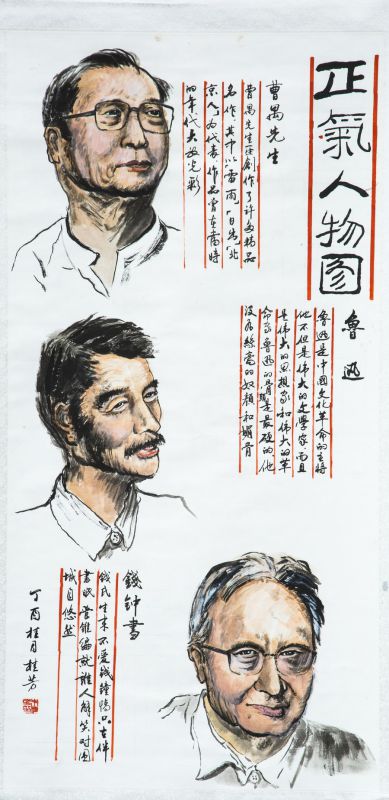 正氣人物图
曹禺先生
曹禺先生在創作了許多精品
名作，其中以雷雨、日出、北
京人，为代表作品曾在當時
四年代大放光彩
鲁迅
鲁迅是中國文化革命的主將
他不但是偉大的文學家，而且
是偉大的思想家和偉大的革
命家，鲁迅的骨頭是最硬的，他
没有絲毫的奴顏和媚骨
錢钟書
錢氏生來不爱錢鐘鳴只在伴
書眠管錐編就誰人解笑对圍
城自悠然
丁酉桂月桂芳